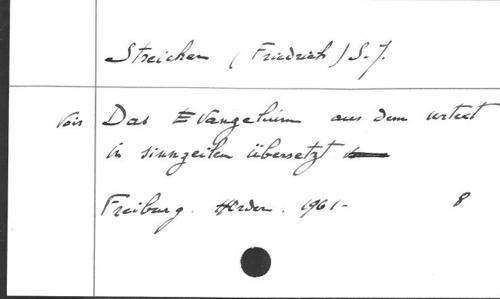 Streicher (Friedrich) S.J.
Voir Das Evangelium aus dem urtext
in sinnzeilen übersetzt
Freiburg. Herder. 1961- 8